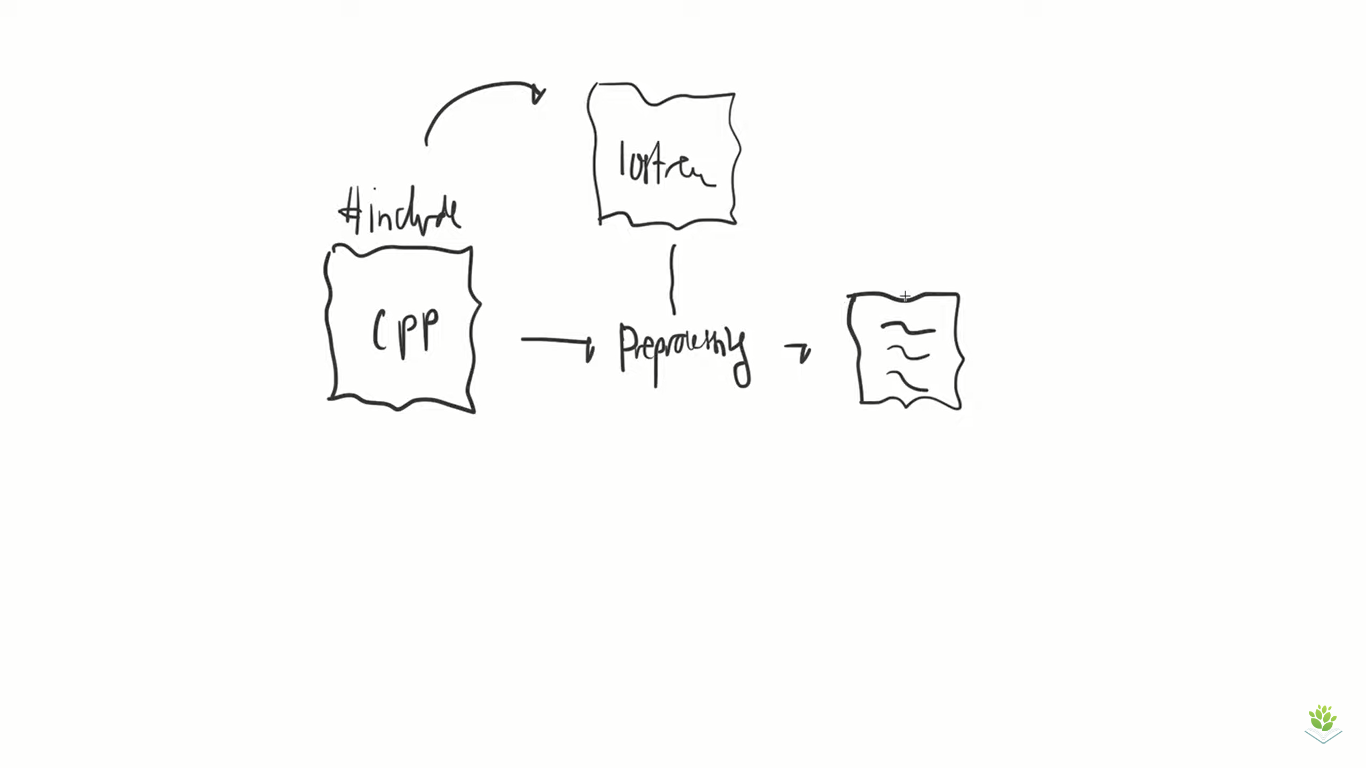 #include
iostream
cpp
Preprocessing